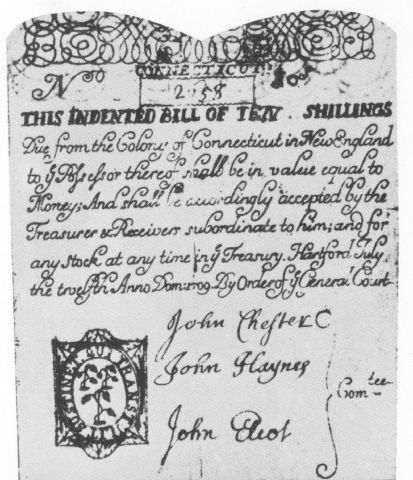 No
CONNECTICUT 10s
2158
THIS INDENTED BILL OF TEN SHILLINGS
Due from the Colony of Connecticut in New England
to ye Possessor thereof shall be in value equal to
Money; And shall be accordingly accepted by the
Treasurer & Receivers subordinate to him; and for
any Stock at any time in ye Treasury. Hartford July
the twelfth Anno Dom: 1709. By Order of ye General Court
John Chester
John Haynes
John Eliot
Com tee
SUSTINET QUI TRANSTULIT